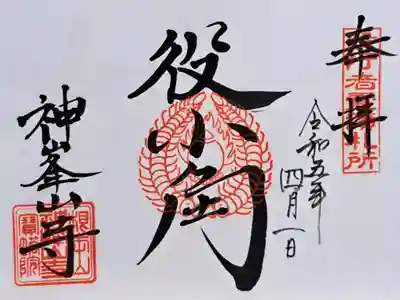 奉拝
令和五年
四月一日
役小角
神峯山寺